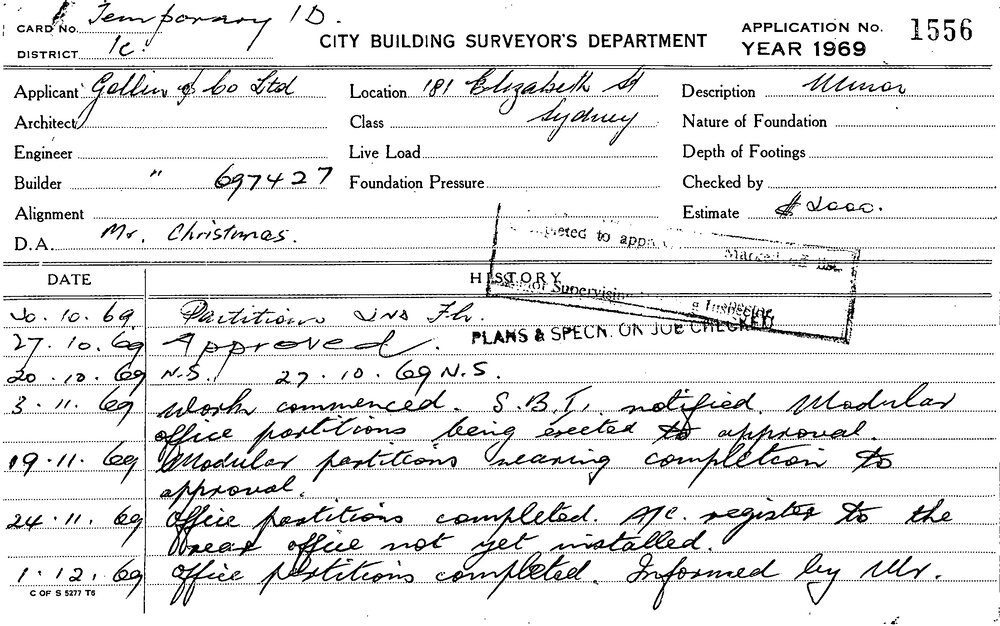 CARD No. Temporary 1D.
DISTRICT 1c.
CITY BUILDING SURVEYOR'S DEPARTMENT
APPLICATION No. 1556
YEAR 1969
Applicant Gollin & Co Ltd
Location 181 Elizabeth St
Description Minor
Architect
Class Sydney
Nature of Foundation
Engineer
Live Load
Depth of Footings
Builder " 697427
Foundation Pressure
Checked by
Alignment
Estimate $2000.
D.A. Mr. Christmas.
to
Supervising
Inspector
PLANS & SPECN. ON JOB CHECKED
DATE HISTORY
20.10.69 Partitions Fl.
27.10.69 Approved.
20.10.69 N.S. 27.10.69 N.S.
3.11.69 Work commenced. S.B.I. notified. Modular
office partitions being erected to approval.
19.11.69 Modular partitions nearing completion to
approval.
24.11.69 Office partitions completed. A/C. register to the
rear office not yet installed.
1.12.69 Office partitions completed. Informed by Mr.
C OF S 5277 T6